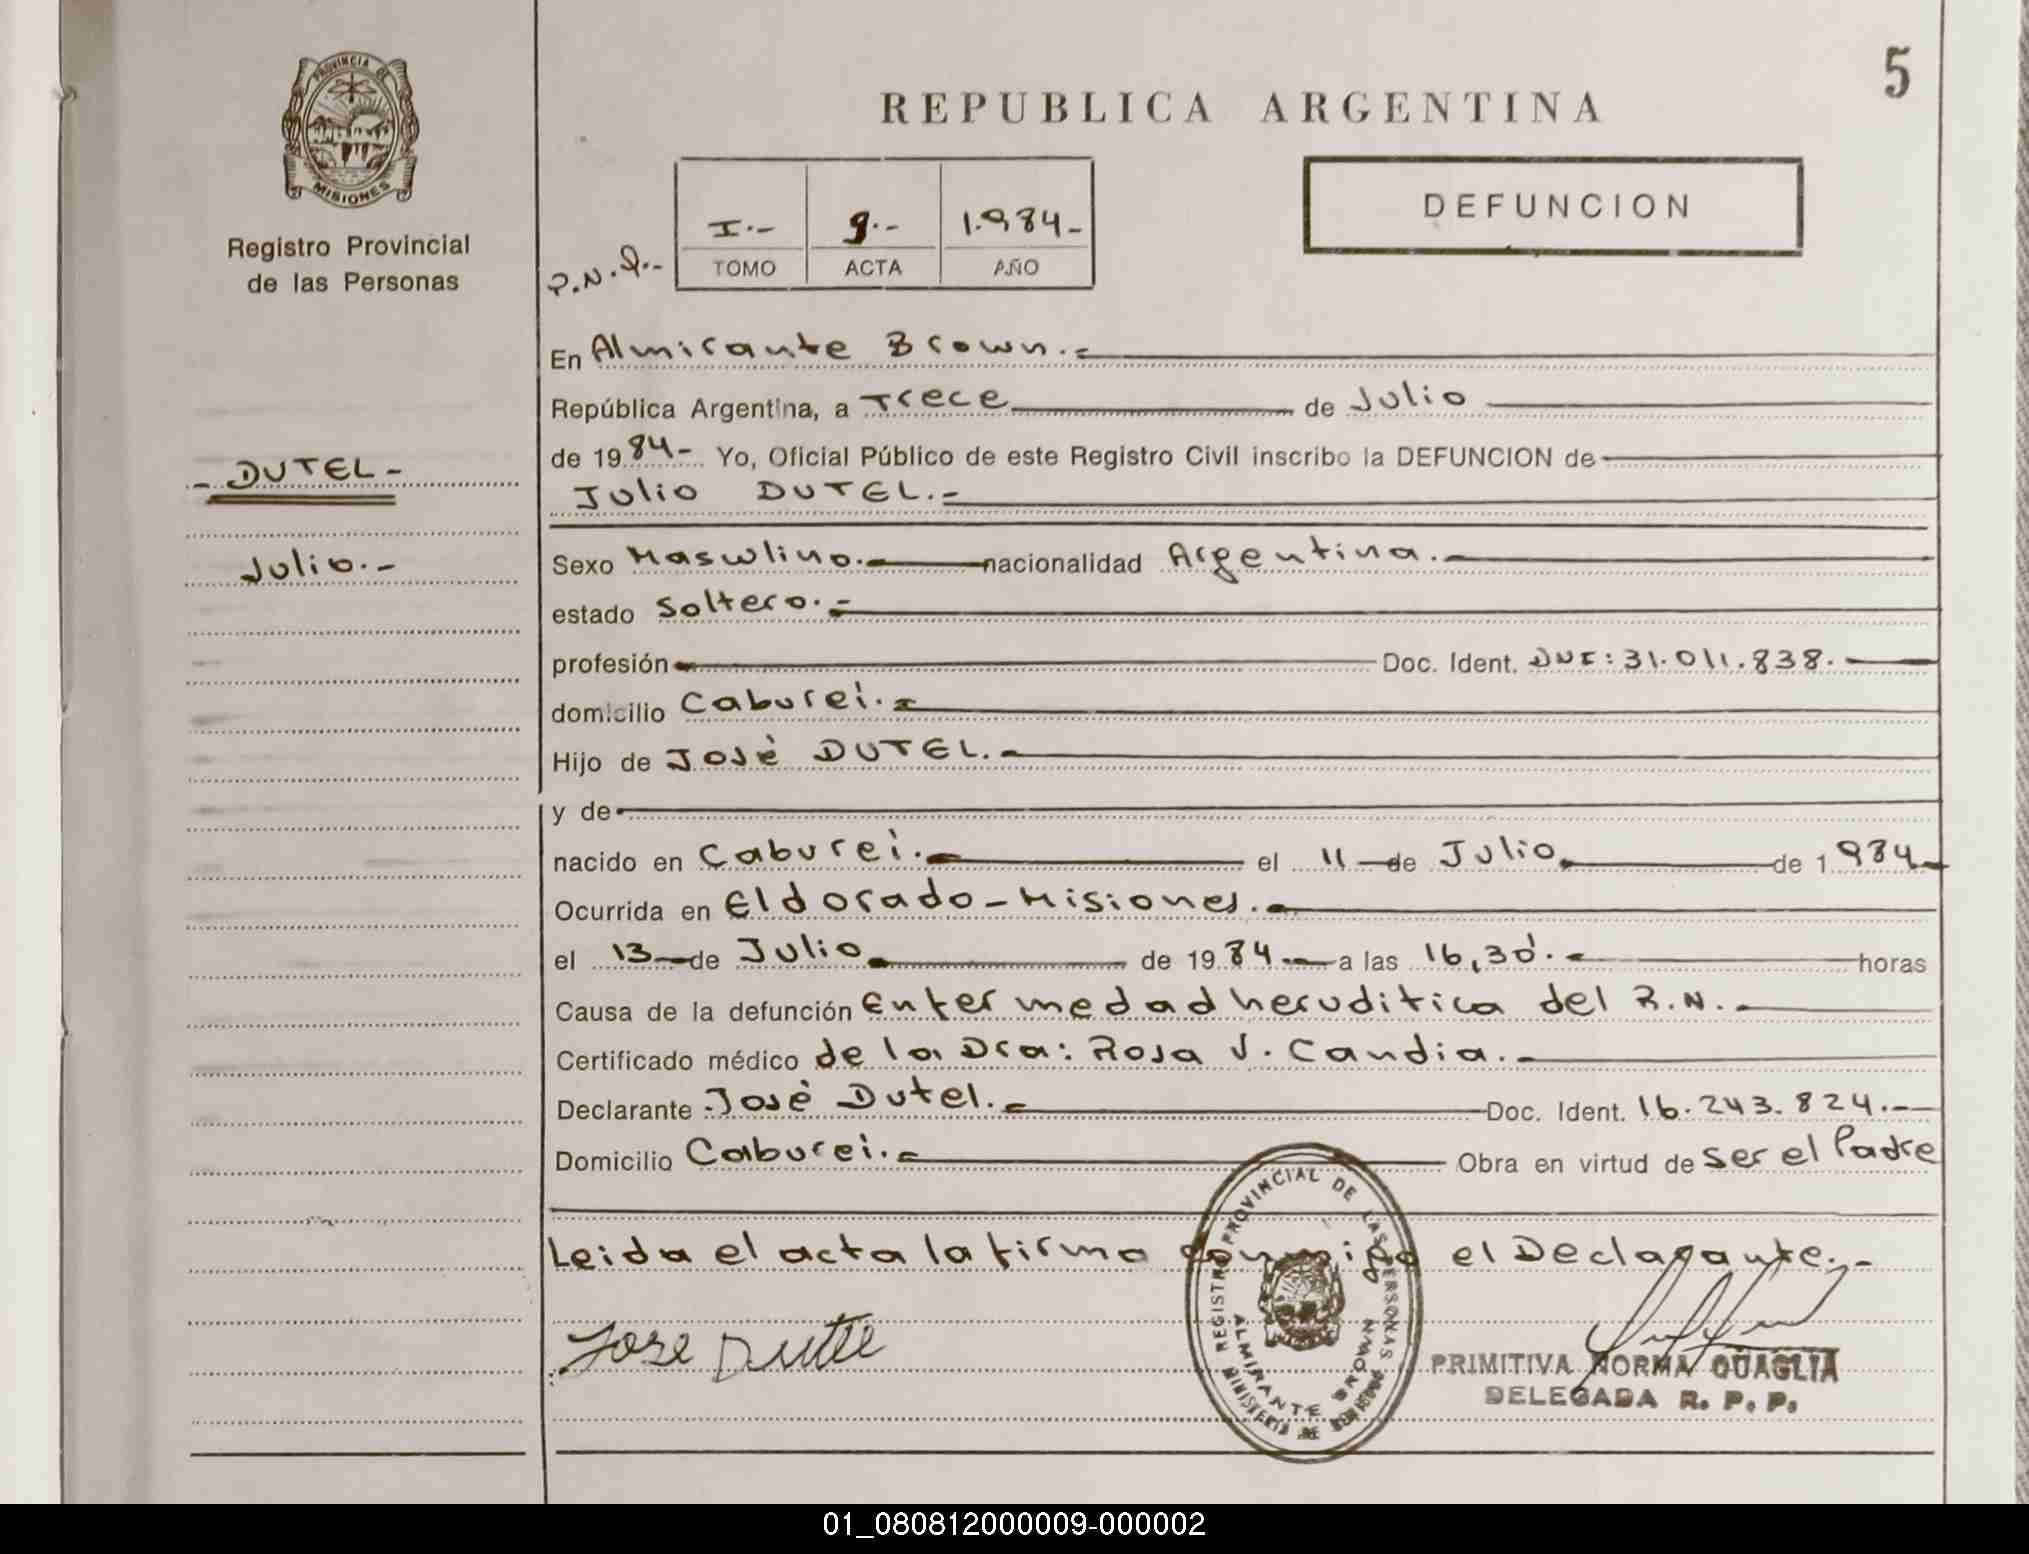 5
PROVINCIA DE
MISIONES
Registro Provincial
de las Personas
REPUBLICA ARGENTINA
DEFUNCION
I.- 9.- 1.984-
TOMO ACTA AÑO
En Almirante Brown.-
República Argentina, a Trece de Julio
de 19 84- Yo, Oficial Público de este Registro Civil inscribo la DEFUNCION de
- DUTEL -
Julio DUTEL.-
Julio.-
Sexo Masculino.- nacionalidad Argentina.-
estado Soltero.-
profesión Doc. Ident. DNI: 31.011.838.-
domicilio Caburei.-
Hijo de José DUTEL.-
y de
nacido en Caburei.- el 11 de Julio de 1 984-
Ocurrida en Eldorado - Misiones.-
el 13 de Julio de 19 84 - a las 16,30.- horas
Causa de la defunción Enfermedad heruditica del R.N.-
Certificado médico de la Dra: Rosa V. Candia.-
Declarante José Dutel.- Doc. Ident. 16.243.824.-
Domicilio Caburei.- Obra en virtud de Ser el Padre
Leida el acta la firma conmigo el Declarante.-
REGISTRO PROVINCIAL DE LAS PERSONAS
ALMIRANTE BROWN
Jose Dutel
PRIMITIVA NORMA QUAGLIA
DELEGADA R. P. P.
01_080812000009-000002